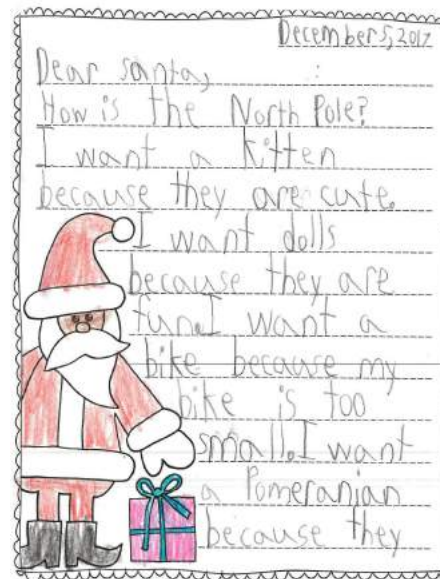 December 5, 2017
Dear santa,
How is the North Pole?
I want a kitten
because they are cute.
I want dolls
because they are
fun. I want a
bike because my
bike is too
small. I want
a Pomeranian
because they